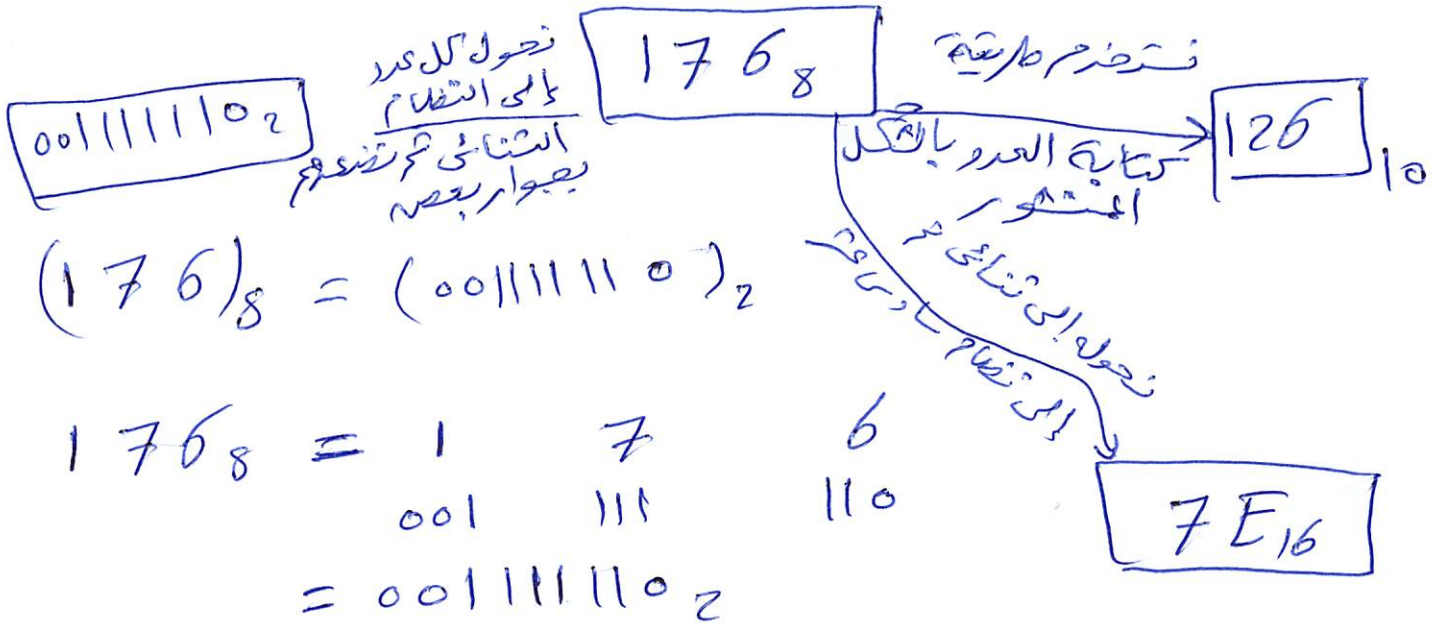 176₈
نحول كل عدد
إلى النظام
الثنائي ثم نضعهم
بجوار بعض
001111110₂
نستخدم طريقة
كتابة العدد بالشكل
المنشور
126₁₀
نحوله إلى ثنائي ثم
إلى نظام سادس عشر
7E₁₆
(176)₈ = (001111110)₂
176₈ = 1 7 6
001 111 110
= 001111110₂